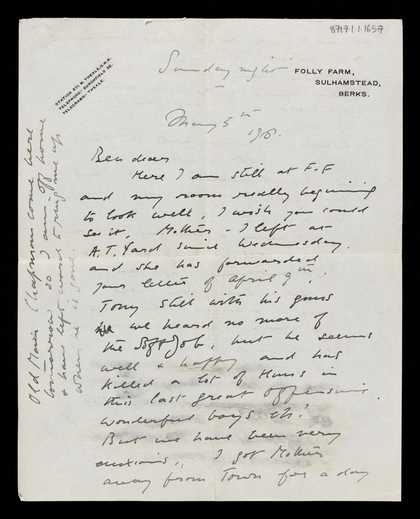 8717/1/1657
Sunday night
STATION & P.O. THEALE, G.W.R.
TELEPHONE: BURGHFIELD
TELEGRAMS: THEALE.
FOLLY FARM,
SULHAMSTEAD,
BERKS.
May 5th
Ben dear
Here I am still at F.F
and my room really beginning
to look well, I wish you could
see it, Mother - I left at
A.T. Yard until Wednesday.
and she has forwarded
your letter of April 9th!
Tony still with his guns
we heard no more of
the Job, but he seems
well & happy and has
killed a lot of Huns in
this last great offensive.
wonderful boys eh.
But we have been very
anxious, I got Mother
away from Town for a day
Old Chapman comes here
tomorrow so I am off home
& have left word to ring me up
when he is gone.